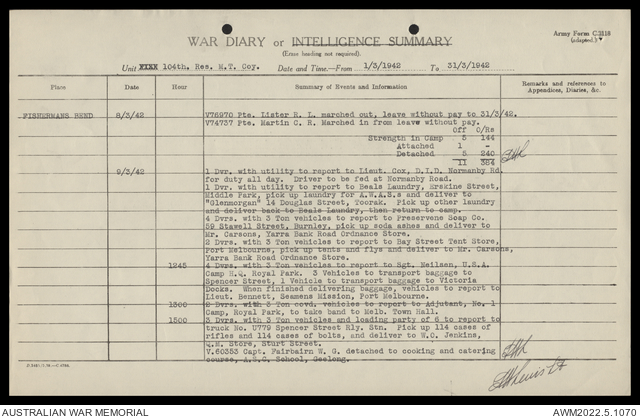 Army Form C.2118
(adapted.)
WAR DIARY or INTELLIGENCE SUMMARY
(Erase heading not required).
Unit 104th. Res. M.T. Coy. Date and Time.—From 1/3/1942 To 31/3/1942
Place Date Hour Summary of Events and Information Remarks and references to Appendices, Diaries, &c.
FISHERMANS BEND 8/3/42 V76970 Pte. Lister R. L. marched out, leave without pay to 31/3/42.
V74737 Pte. Martin C. R. Marched in from leave without pay.
Off O/Rs
Strength in Camp 5 144
Attached 1 -
Detached 5 240
11 384
9/3/42 1 Dvr. with utility to report to Lieut. Cox, D.I.D. Normanby Rd.
for duty all day. Driver to be fed at Normanby Road.
1 Dvr. with utility to report to Beals Laundry, Erskine Street,
Middle Park, pick up laundry for A.W.A.S.s and deliver to
"Glenmorgan" 14 Douglas Street, Toorak. Pick up other laundry
and deliver back to Beals Laundry, then return to camp.
4 Dvrs. with 3 Ton vehicles to report to Preservene Soap Co.
59 Stawell Street, Burnley, pick up soda ashes and deliver to
Mr. Carsons, Yarra Bank Road Ordnance Store.
2 Dvrs. with 3 Ton vehicles to report to Bay Street Tent Store,
Port Melbourne, pick up tents and flys and deliver to Mr. Carsons,
Yarra Bank Road Ordnance Store.
1245 4 Dvrs. with 3 Ton vehicles to report to Sgt. Neilsen, U.S.A.
Camp H.Q. Royal Park. 3 Vehicles to transport baggage to
Spencer Street, 1 Vehicle to transport baggage to Victoria
Docks. When finished delivering baggage, vehicles to report to
Lieut. Bennett, Seamens Mission, Port Melbourne.
1300 2 Dvrs. with 3 Ton covd. vehicles to report to Adjutant, No. 1
Camp, Royal Park, to take band to Melb. Town Hall.
1500 3 Dvrs. with 3 Ton vehicles and loading party of 6 to report to
truck No. U779 Spencer Street Rly. Stn. Pick up 114 cases of
rifles and 114 cases of bolts, and deliver to W.O. Jenkins,
Q.M. Store, Sturt Street.
V.60353 Capt. Fairbairn W. G. detached to cooking and catering
course, A.S.C. School, Geelong.
AUSTRALIAN WAR MEMORIAL AWM2022.5.1070